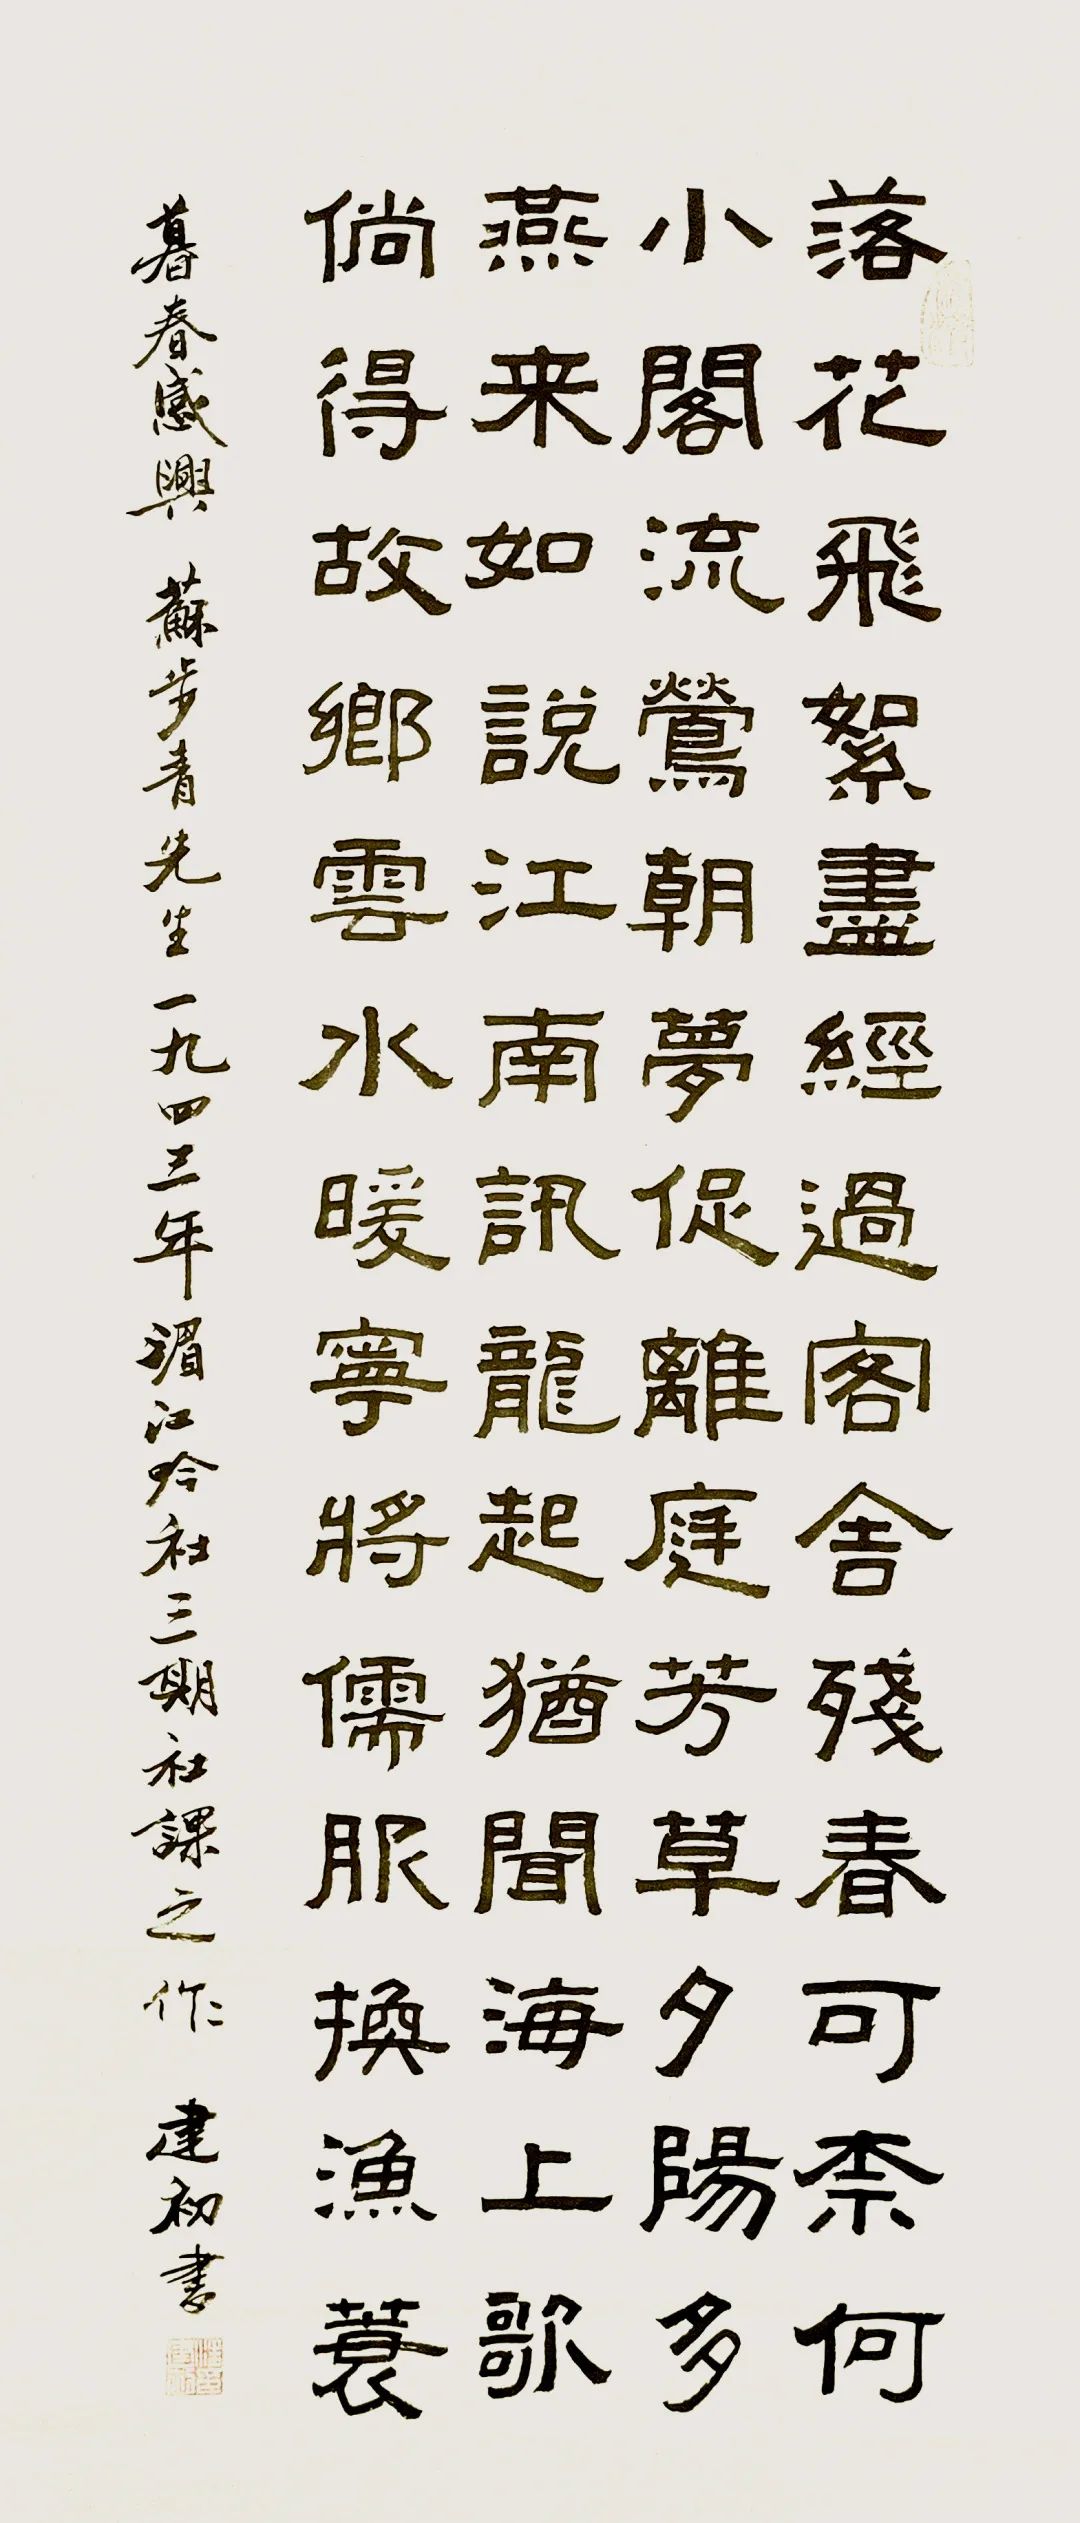 落花飛絮盡經過客舍殘春可柰何
小閣流鶯朝夢促離庭芳草夕陽多
燕来如說江南訊龍起猶聞海上歌
倘得故鄉雲水暖寧將儒服換漁蓑
暮春感興 蘇步青先生一九四三年湄江吟社三期社課之作 建初書